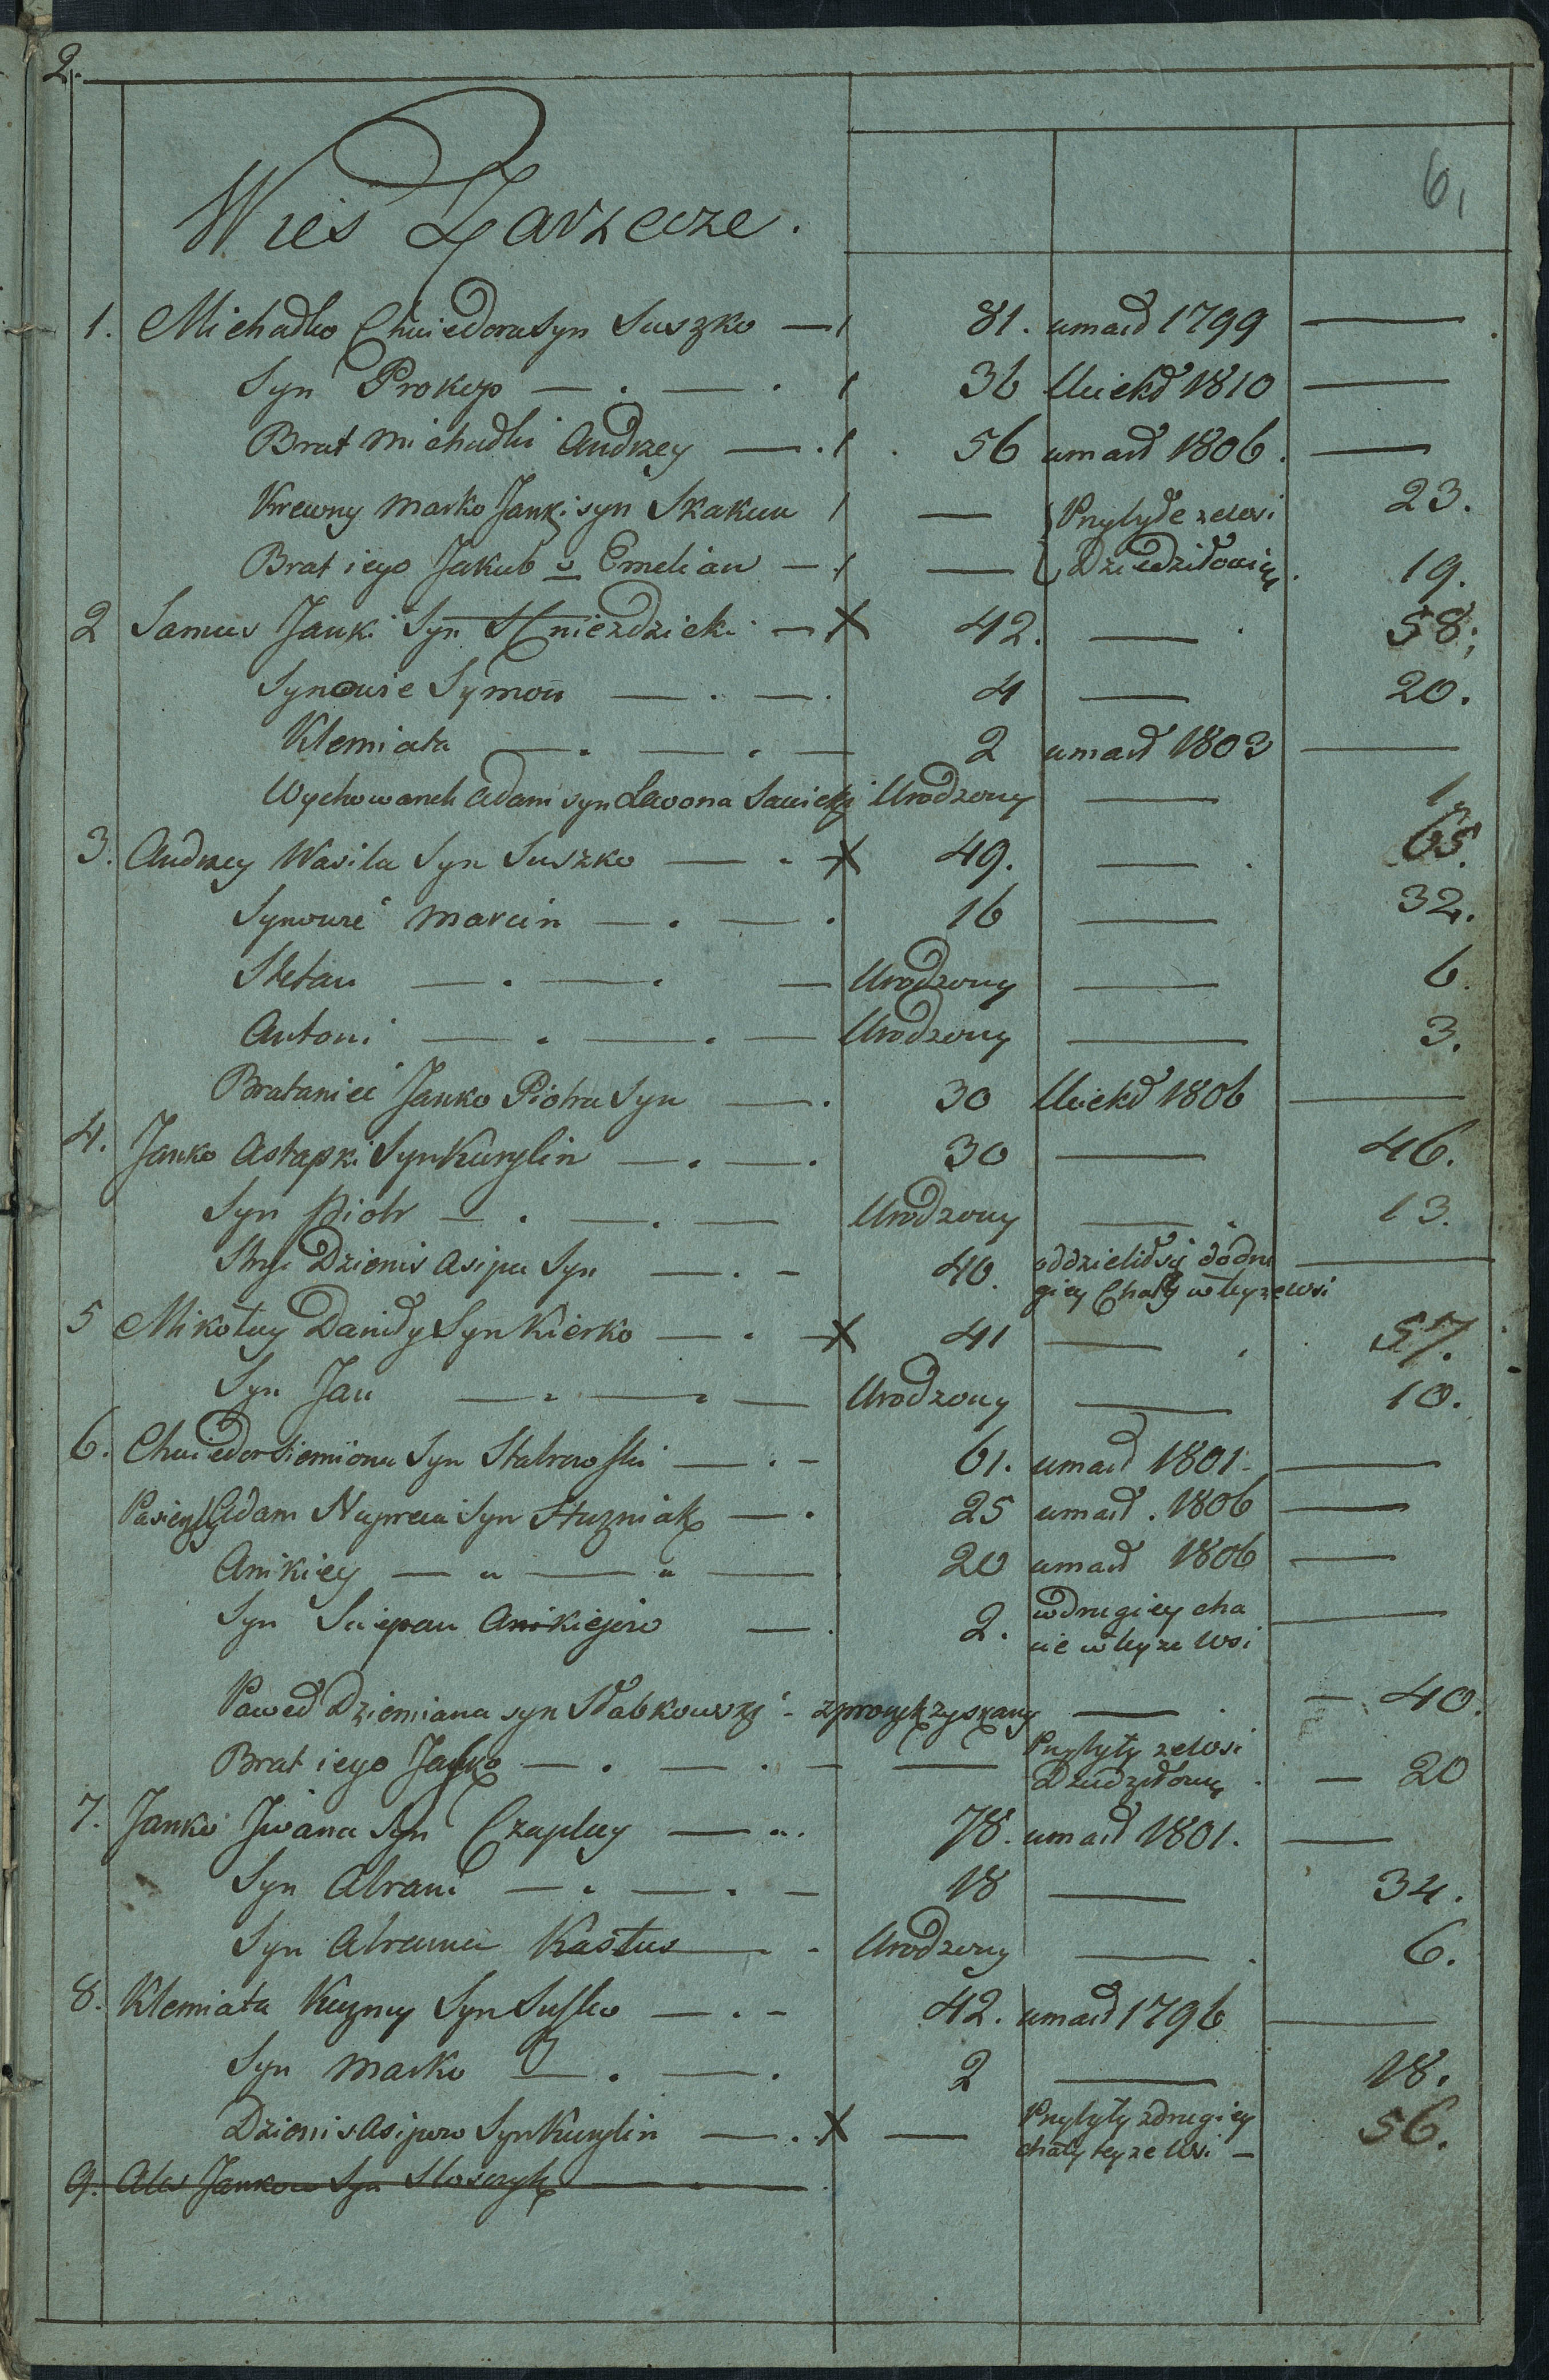 2.
6,
Wieś Zarzecze.
1. Michałko Chwiedora Syn Suszko — 81. umarł 1799 —
Syn Prokop — . — . 36 Uciekł 1810 —
Brat Michałki Andrzey — . 56 umarł 1806. —
Krewny Marko Janki syn Skakun — Przybyłe ze wsi 23.
Brat iego Jakub Emelian — — Dziedziłowicz. 19.
2 Samus Janki Syn Hniezdzicki — X 42. — . 58;
Synowie Symon — . — . 4 — 20.
Klemiata — . — . — 2 umarł 1803 —
Wychowanek Adam syn Lawona Sawicki Urodzony — 1,
3. Andrzey Wasila Syn Suszko — . X 49. — . 65.
Synowie Marcin — . — . 16 — 32.
Stefan — . — . — Urodzony — 6.
Antoni — . — . — Urodzony — 3.
Brataniec Janko Piotra Syn — . 30 Uciekł 1806 —
4. Janko Astapki Syn Kurylin — . — . 30 — 46.
Syn Piotr — . — . — Urodzony — . 13.
Stryi Dzienis Asipa Syn — . — 40. oddzielił się do dru —
giey Chaty w teyze wsi
5 Mikołay Daniły Syn Kierko — . X 41 — . 57.
Syn Jan — . — . — Urodzony — 10.
6. Chwiedor Siemiona Syn — . — 61. umarł 1801. —
Adam Syn — . 25 umarł. 1806 —
Anikiey — „ — „ — 20 umarł 1806 —
Syn Sciepan Anikiejew — . 2. w drugiey cha —
cie w teyze Wsi
Paweł Dziemiana syn Słabkowski — — . — 40.
Brat iego Jaśko — . — . — — Przybyły ze Wsi
Dziedziłowicz . — 20
7. Janko Jwana Syn Czapley — „. 78. umarł 1801. —
Syn Abram — . — . — 18 — 34.
Syn Abrama Kastus — . - Urodzony — . 6.
8. Klemiata Kuzmy Syn Suszko — . — 42. umarł 1796 —
Syn Marko — . — . 2 — 18.
Dzienis Asipow Syn Kurylin — . X — Przybyły z drugiey 56.
chaty teyze Wsi —
9. Ales Jankow Syn — . —